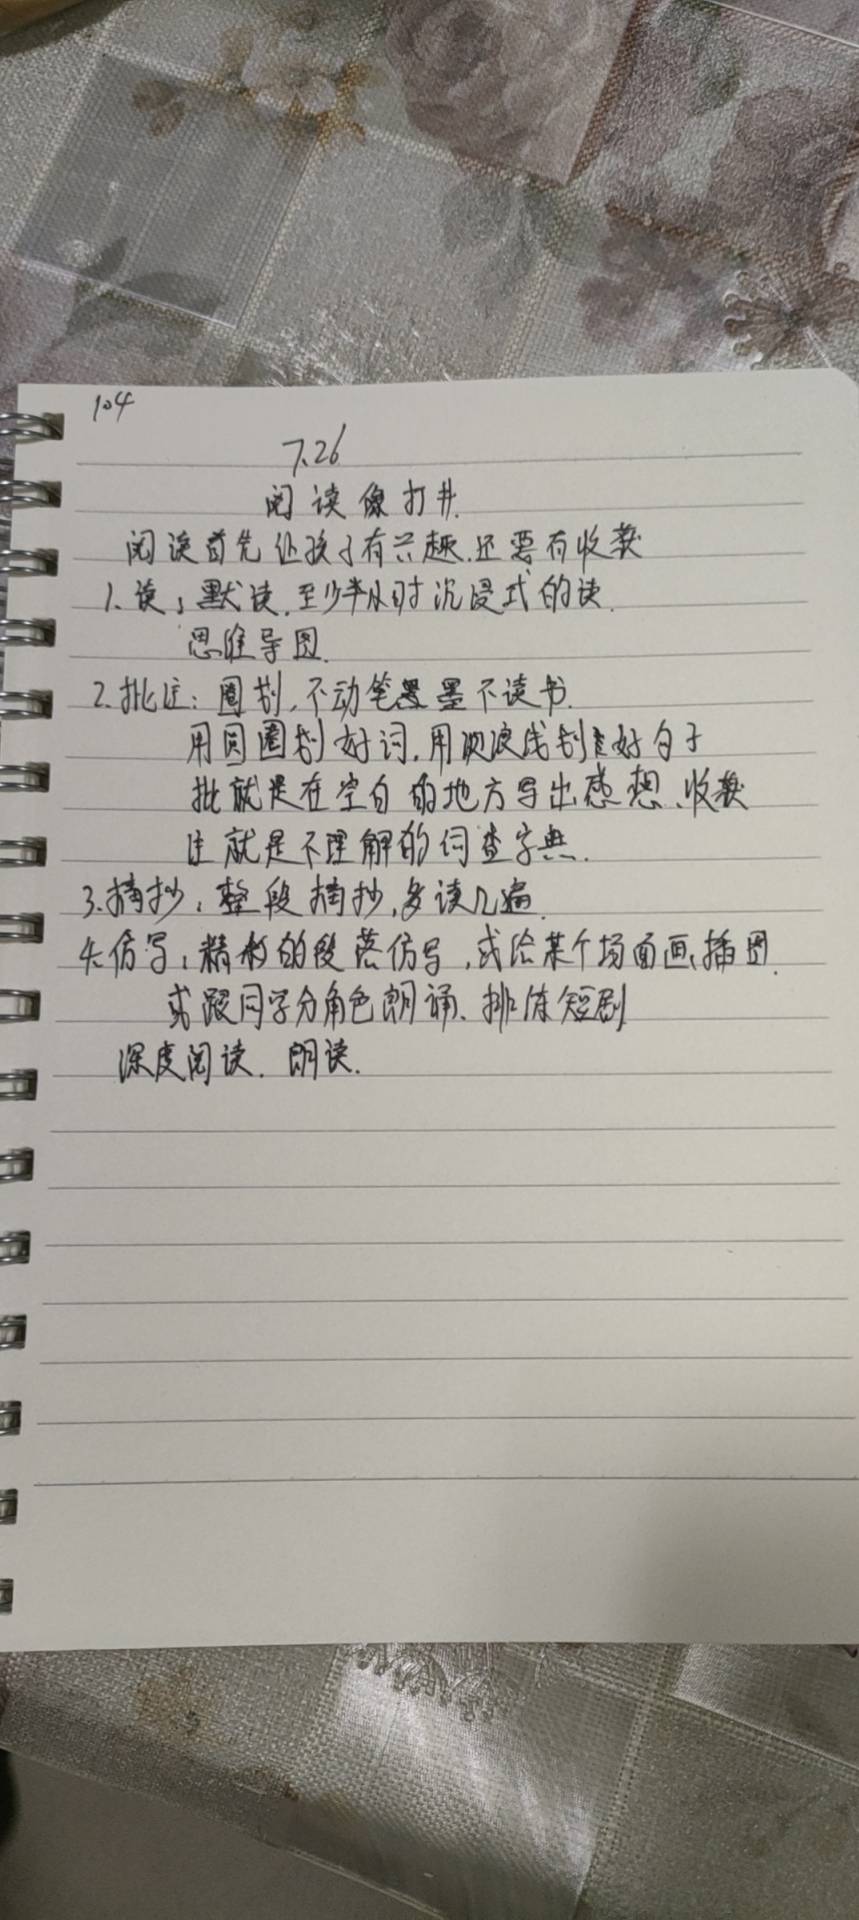 104
7.26
阅读像打井.
阅读首先让孩子有兴趣.还要有收获
1.读:默读.至少半小时沉浸式的读.
思维导图.
2.批注:圈划,不动笔墨不读书.
用圆圈划好词,用波浪线划好句子
批就是在空白的地方写出感想、收获
注就是不理解的词查字典.
3.摘抄:整段摘抄,多读几遍.
4.仿写:精彩的段落仿写,或给某个场面画插图.
或跟同学分角色朗诵、排练短剧
深度阅读.朗读.